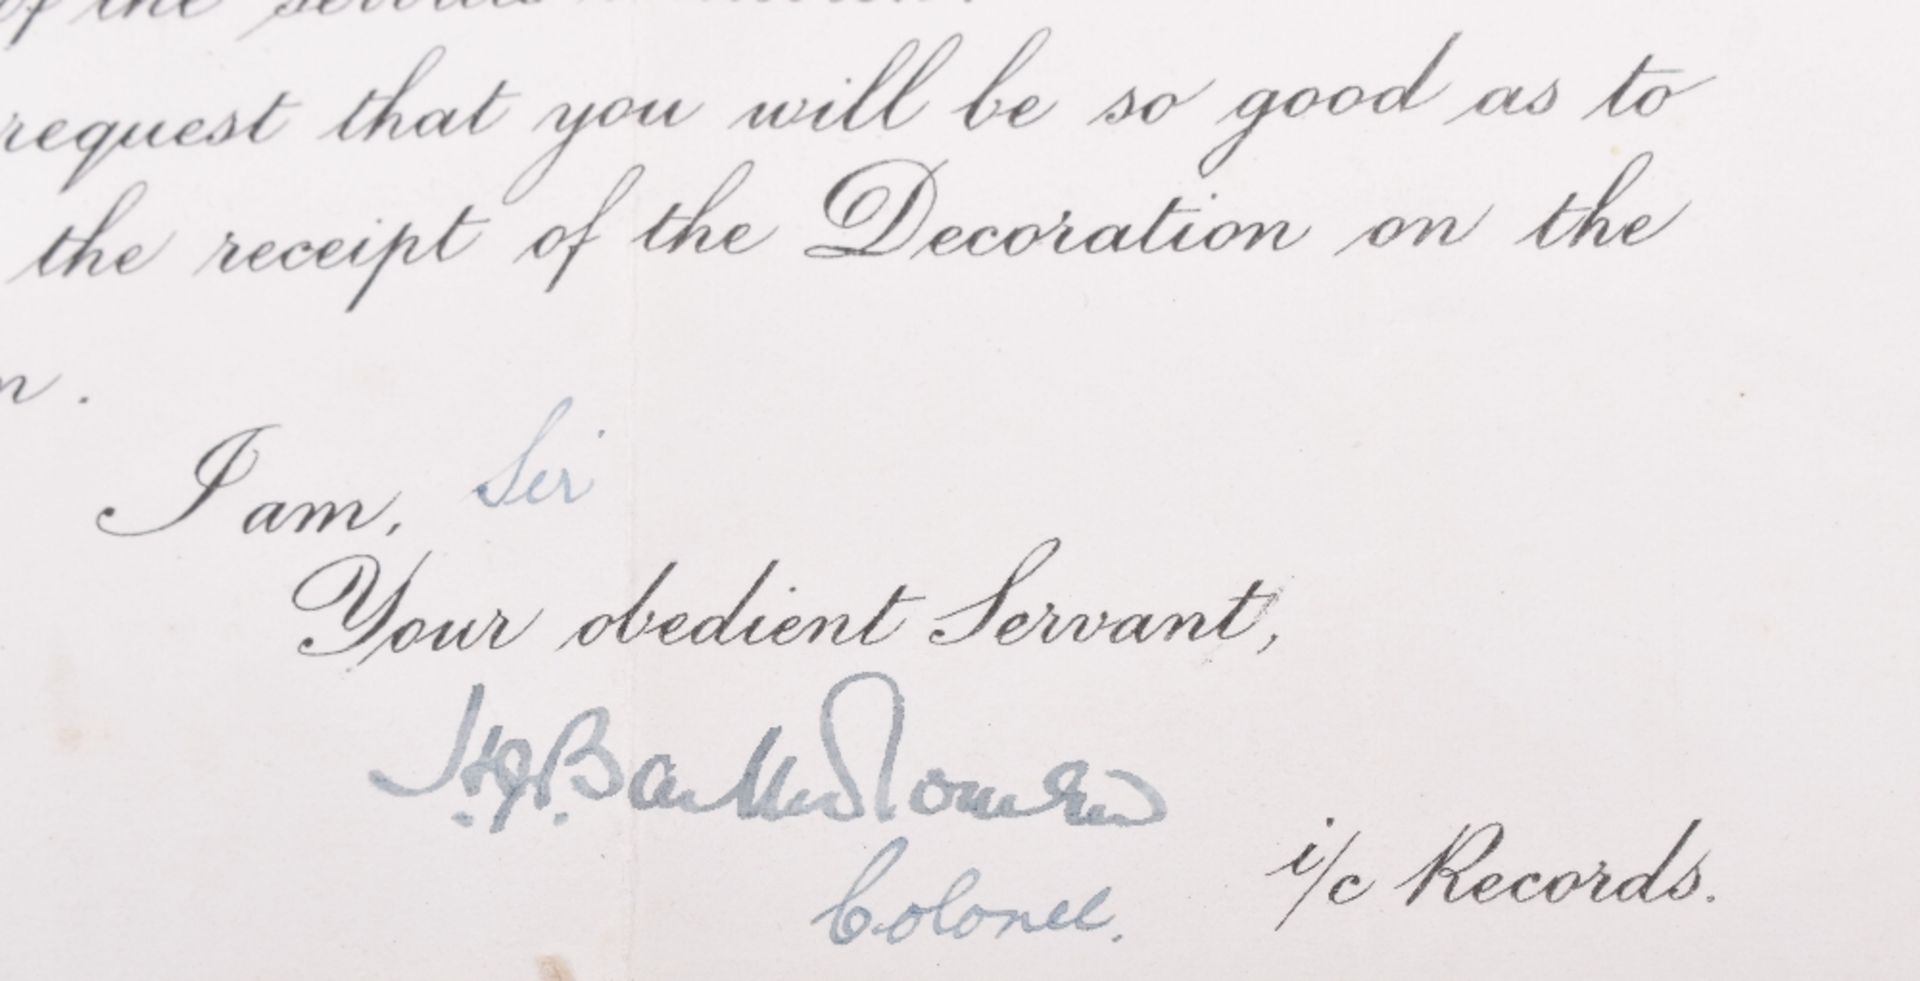 of the
request that you will be so good as to
the receipt of the Decoration on the
I am, Sir
Your obedient Servant,
Colonel.
i/c Records.